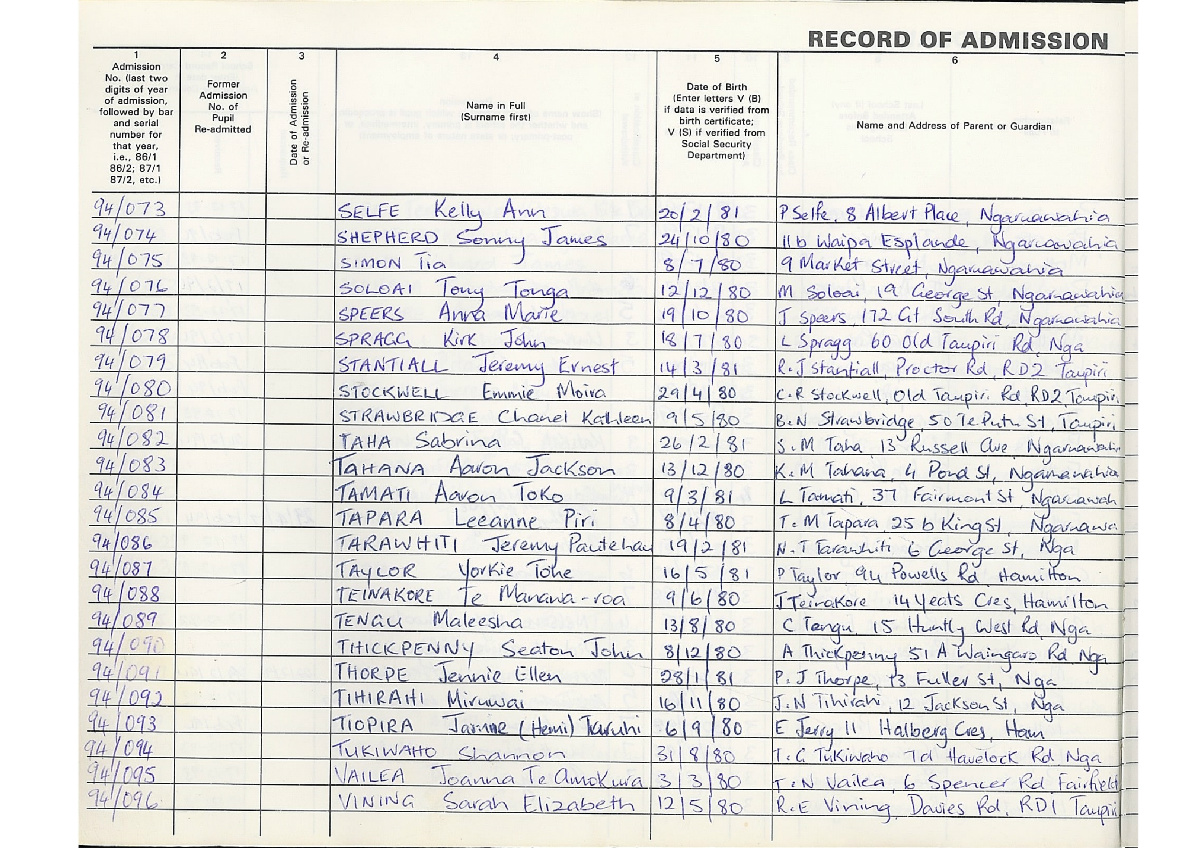 RECORD OF ADMISSION
1 2 3 4 5 6
Admission No. (last two digits of year of admission, followed by bar and serial number for that year, i.e., 86/1 86/2; 87/1 87/2, etc.)
Former Admission No. of Pupil Re-admitted
Date of Admission or Re-admission
Name in Full (Surname first)
Date of Birth (Enter letters V (B) if data is verified from birth certificate; V (S) if verified from Social Security Department)
Name and Address of Parent or Guardian
94/073 SELFE Kelly Ann 20/2/81 P Selfe, 8 Albert Place, Ngaruawahia
94/074 SHEPHERD Sonny James 24/10/80 11b Waipa Esplande, Ngaruawahia
94/075 SIMON Tia 8/7/80 9 Market Street, Ngaruawahia
94/076 SOLOAI Tony Tonga 12/12/80 M Soloai, 19 George St, Ngaruawahia
94/077 SPEERS Anna Marie 19/10/80 J Speers, 172 Gt South Rd, Ngaruawahia
94/078 SPRAGG Kirk John 18/7/80 L Spragg 60 Old Taupiri Rd, Nga
94/079 STANTIALL Jeremy Ernest 14/3/81 R.J Stantiall, Proctor Rd, RD2 Taupiri
94/080 STOCKWELL Emmie Moira 29/4/80 C.R Stockwell, Old Taupiri Rd, RD2 Taupiri
94/081 STRAWBRIDGE Chanel Kathleen 9/5/80 B.N Strawbridge, 50 Te Putu St, Taupiri
94/082 TAHA Sabrina 26/2/81 S.M Taha, 13 Russell Ave, Ngaruawahi
94/083 TAHANA Aaron Jackson 13/12/80 K.M Tahana, 4 Pond St, Ngaruawahia
94/084 TAMATI Aaron Toko 9/3/81 L Tamati, 37 Fairmont St, Ngaruawah
94/085 TAPARA Leeanne Piri 8/4/80 T.M Tapara 25b King St, Ngaruawa
94/086 TARAWHITI Jeremy 19/2/81 N.T Tarawhiti 6 George St, Nga
94/087 TAYLOR Yorkie Tohe 16/5/81 P Taylor, 94 Powells Rd, Hamilton
94/088 TEINAKORE Te Manawa-roa 9/6/80 J Teinakore 14 Yeats Cres, Hamilton
94/089 TENGU Maleesha 13/8/80 C Tengu, 15 Huntly West Rd, Nga
94/090 THICKPENNY Seaton John 8/12/80 A Thickpenny 51 A Waingaro Rd Nga
94/091 THORPE Jennie Ellen 28/1/81 P.J Thorpe, 13 Fuller St, Nga
94/092 TIHIRAHI Miruwai 16/11/80 J.N Tihirahi, 12 Jackson St, Nga
94/093 TIOPIRA (Hemi) 6/9/80 E Jerry 11 Halberg Cres, Ham
94/094 TUKIWAHO Shannon 31/8/80 T.G Tukiwaho 7d Havelock Rd Nga
94/095 VAILEA Joanna Te Amokura 3/3/80 T.N Vailea, 6 Spencer Rd, Fairfield
94/096 VINING Sarah Elizabeth 12/5/80 R.E Vining, Davies Rd, RD1 Taupiri